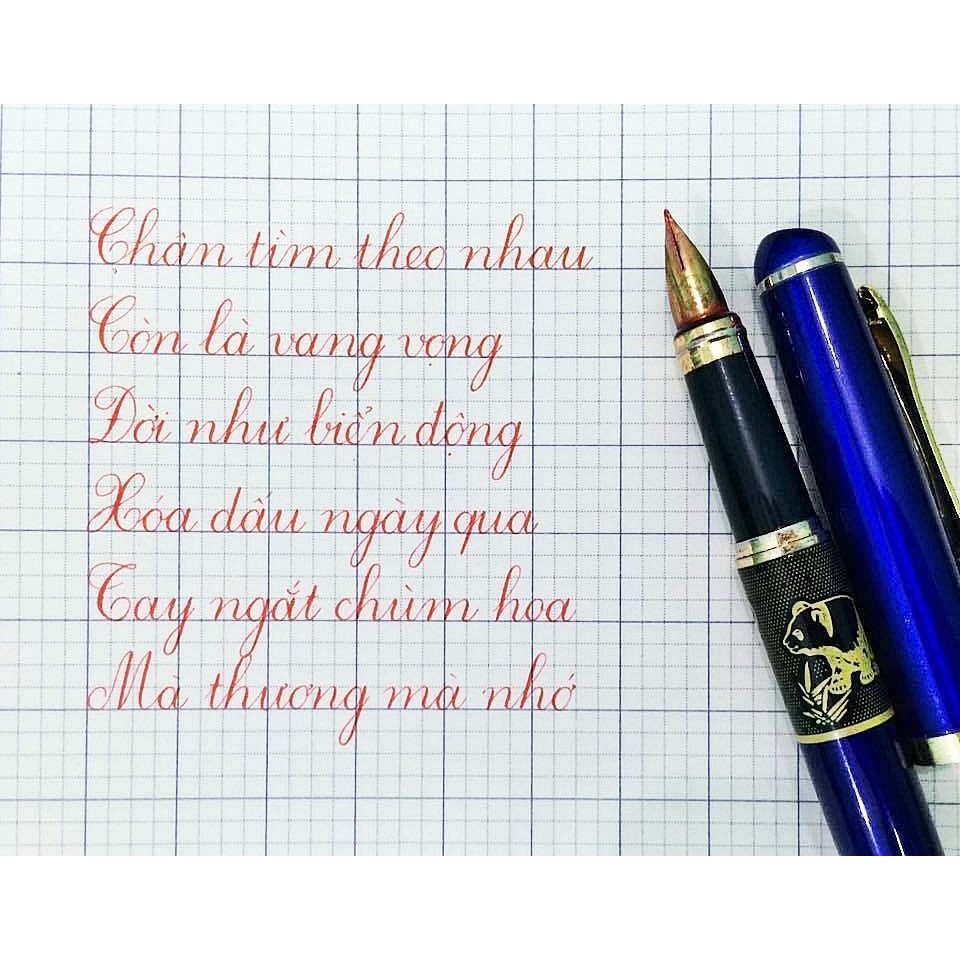 Chân tìm theo nhau
Còn là vang vọng
Đời như biển động
Xóa dấu ngày qua
Tay ngắt chùm hoa
Mà thương mà nhớ